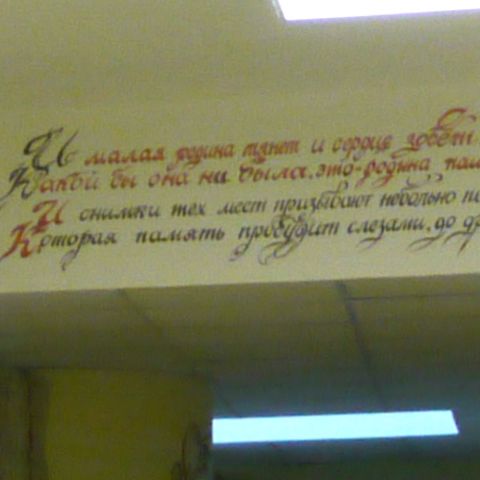 И малая родина тянет и сердце зовёт
Какой бы она ни была, это-родина
И снимки тех мест призывают невольно
Которая память пробудит слезами, до